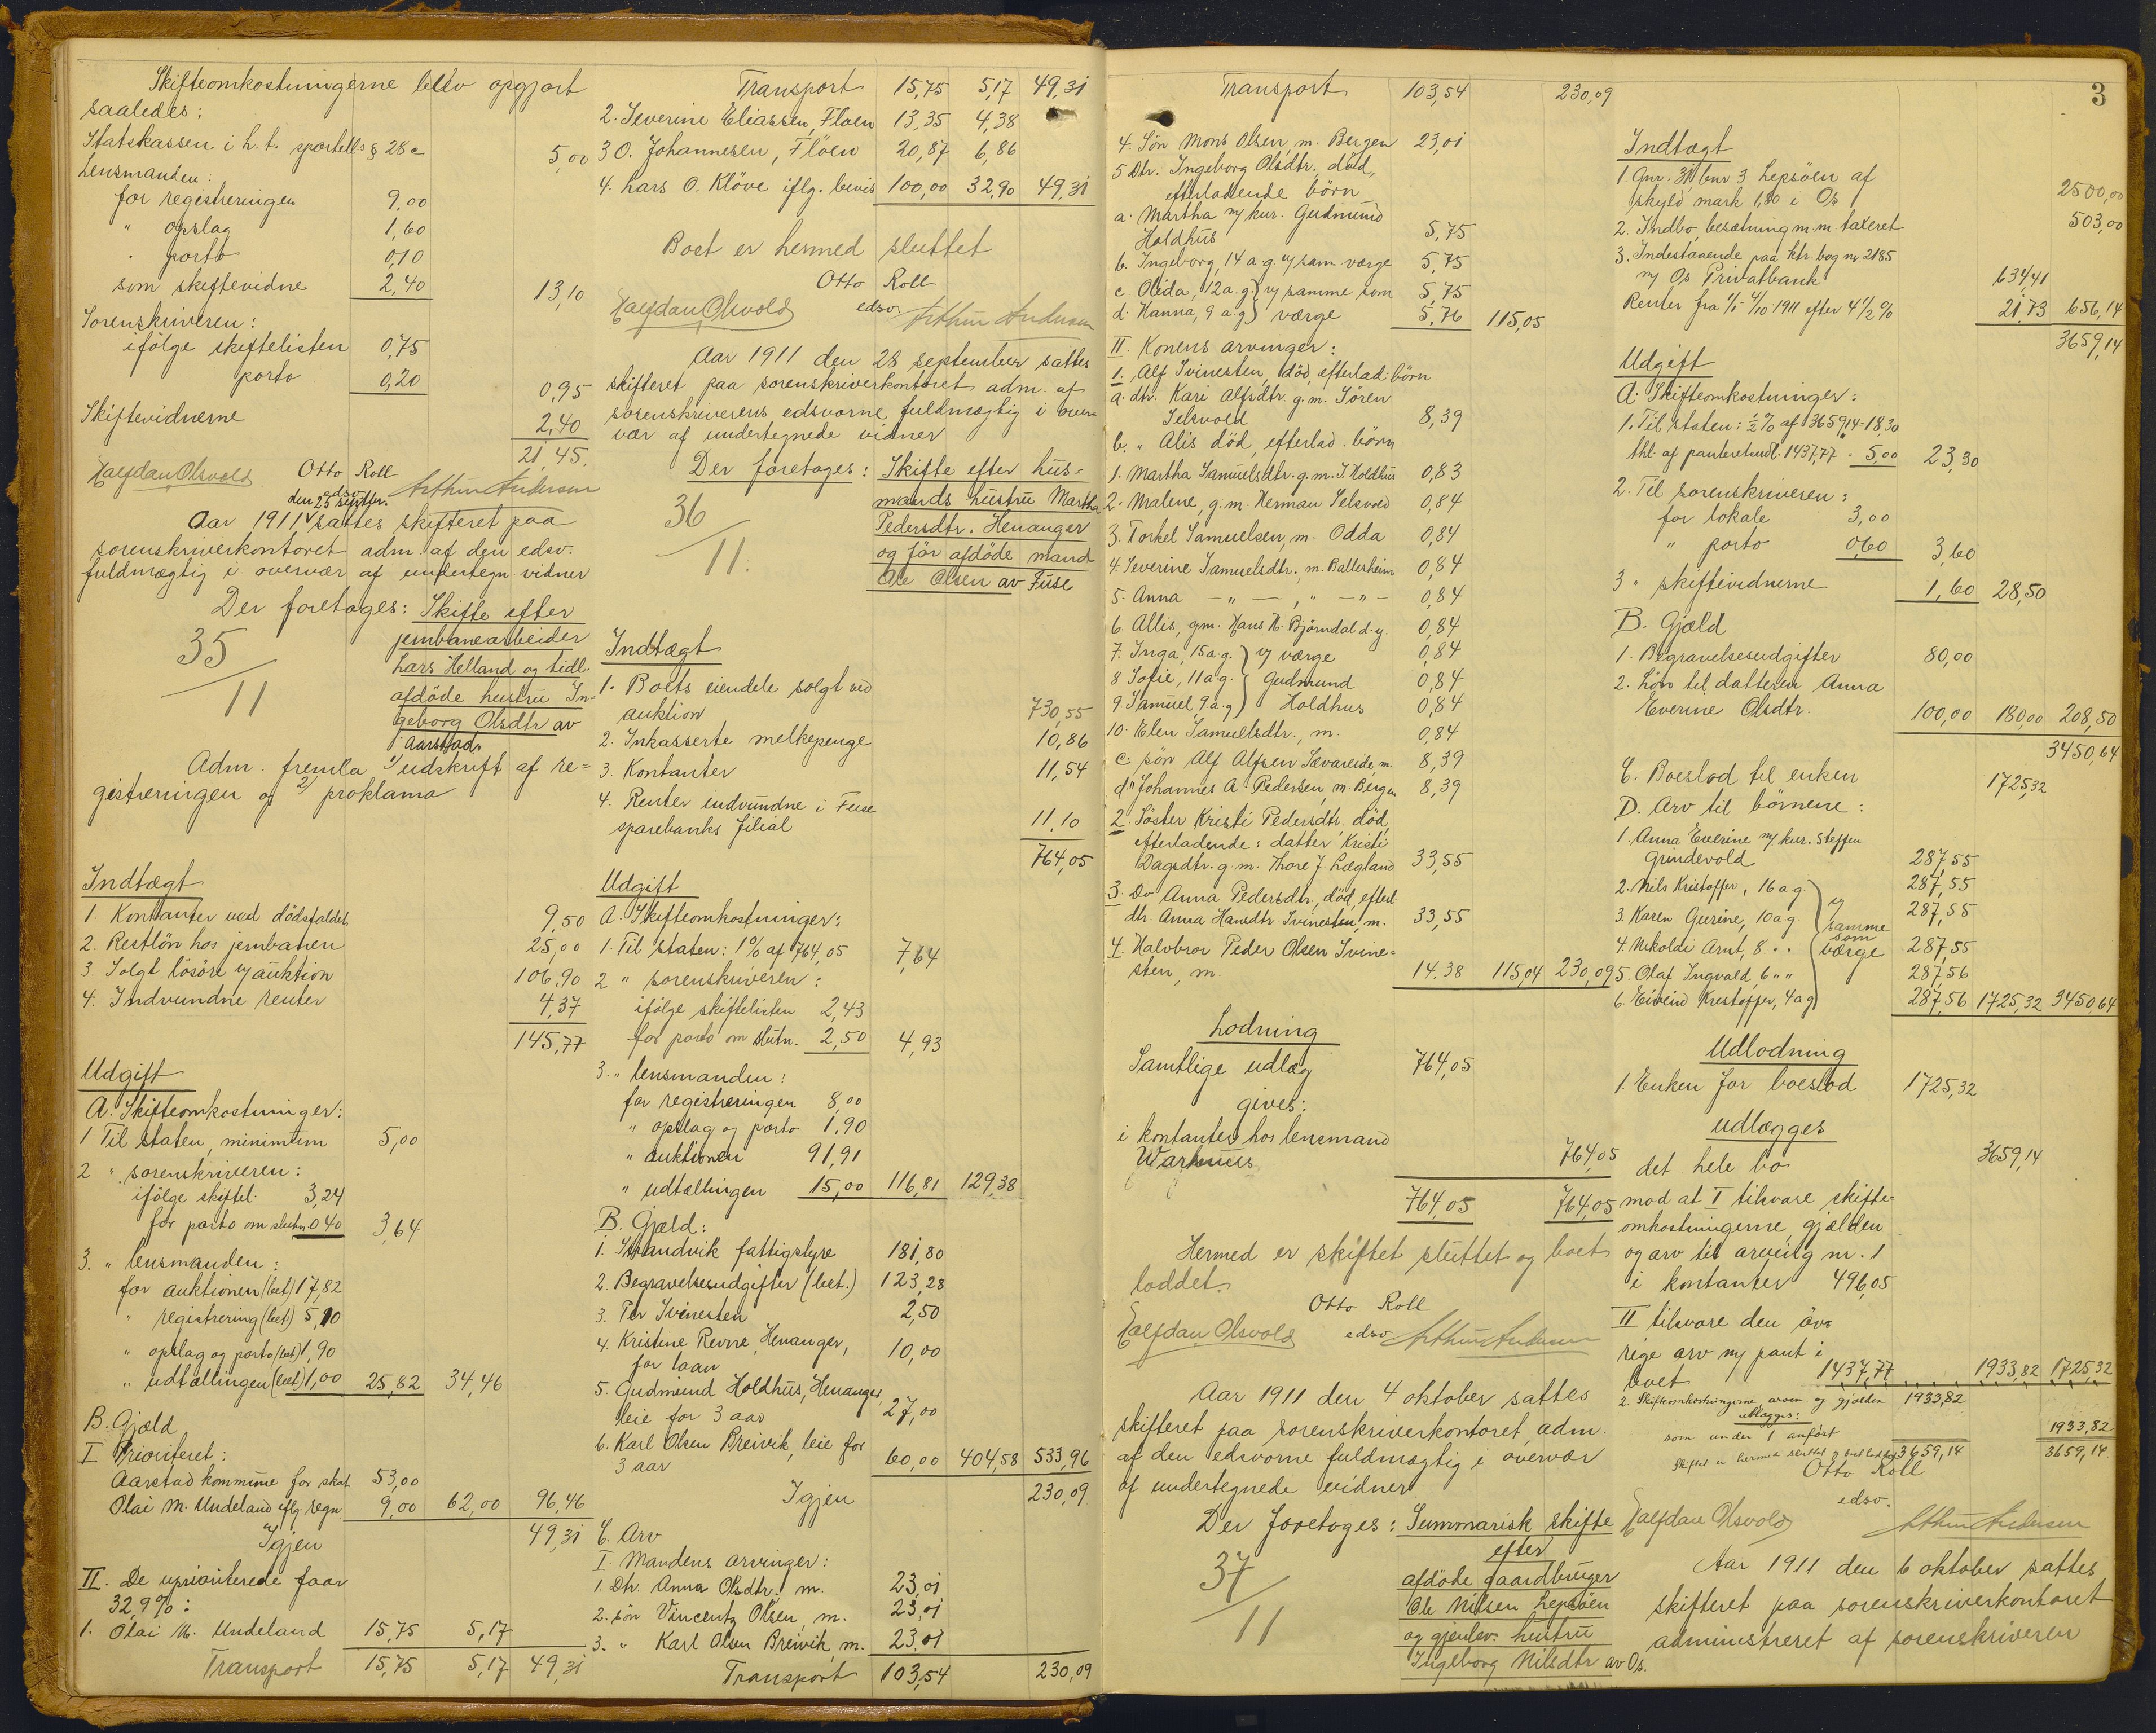 Skifteomkostningerne blev opgjort
saaledes:
Statskassen i h.t. sportells § 28 c 5,00
Lensmanden:
for registreringen 9,00
" opslag 1,60
" porto 0,10
som skiftevidne 2,40 13,10
Sorenskriveren:
ifölge skiftelisten 0,75
porto 0,20 0,95
Skiftevidnerne 2,40
21,45.
Otto Roll
edsv.
Halfdan Olsvold Arthur Andersen
den 25 septbr.
Aar 1911 sattes skifteret paa
sorenskriverkontoret adm. af den edsv.
fuldmægtig i overvær af undertegn vidner
Der foretoges: Skifte efter
jernbanearbeider
35/11
Lars Helland og tidl.
afdöde hustru In-
geborg Olsdtr av
Aarstad.
Adm. fremla 1/ udskrift af re=
gistreringen og 2/ proklama
Indtægt
1. Kontanter ved dödsfaldet 9,50
2. Restlön hos jernbanen 25,00
3. Solgt lösöre v/ auktion 106,90
4. Indvundne renter 4,37
145,77
Udgift
A. Skifteomkostninger:
1 Til staten, minimum 5,00
2 " sorenskriveren:
ifölge skiftel. 3,24
for porto om slutn. 0 40 3,64
3. " lensmanden:
for auktionen (bet) 17,82
" registrering (bet) 5,10
" opslag og porto (bet) 1,90
" udtællingen (bet) 1,00 25,82 34,46
B. Gjæld
I Prioriteret:
Aarstad kommune for skat 53,00
Olai M. Undeland iflg. regn 9,00 62,00 96,46
Igjen 49,31
II. De uprioriterede faar
32,9%:
1. Olai M. Undeland 15,75 5,17
Transport 15,75 5,17 49,31
Transport 15,75 5,17 49,31
2. Severine Eliassen, Floen 13,35 4,38
3 O. Johannesen, Flöen 20,87 6,86
4. Lars O. Klöve iflg. bevis 100,00 32,90 49,31
Boet er hermed sluttet
Otto Roll
edsv.
Halfdan Olsvold Arthur Andersen
Aar 1911 den 28 september sattes
skifteret paa sorenskriverkontoret adm. af
sorenskriverens edsvorne fuldmægtig i over-
vær af undertegnede vidner
Der foretoges: Skifte efter hus=
mands hustru Martha
36/11.
Pedersdtr. Henanger
og för afdöde mand
Ole Olsen av Fuse
Indtægt
1. Boets eiendele solgt ved
auktion 730,55
2. Inkasserte melkepenge 10,86
3. Kontanter 11,54
4. Renter indvundne i Fuse
sparebanks filial 11,10
764,05
Udgift
A. Skifteomkostninger:
1. Til staten: 1% af 764,05 7,64
2 " sorenskriveren:
ifölge skiftelisten 2,43
for porto om slutn. 2,50 4,93
3. " lensmanden:
for registreringen 8,00
" opslag og porto 1,90
" auktionen 91,91
" udtællingen 15,00 116,81 129,38
B. Gjæld:
1. Strandvik fattigstyre 181,80
2. Begravelsesudgifter (bet.) 123,28
3. Per Ivinesten 2,50
4. Kristine Revne, Henanger,
for laan 10,00
5. Gudmund Holdhus, Henanger,
leie for 3 aar 27,00
6. Karl Olsen Breivik, leie for
3 aar 60,00 404,58 533,96
Igjen 230,09
C. Arv
I. Mandens arvinger:
1. Dtr. Anna Olsdtr., m. 23,01
2. sön Vincentz Olsen, m. 23,01
3. " Karl Olsen Breivik, m. 23,01
Transport 103,54 230,09
Transport 103,54 230,09
4. Sön Mons Olsen, m. Bergen 23,01
5 Dtr. Ingeborg Olsdtr., död,
efterladende börn
a. Martha m/ kur. Gudmund
Holdhus 5,75
b. Ingeborg, 14 a g v/ sam. værge 5,75
c. Olida, 12 a. g. v/ samme som 5,75
d. Hanna, 9 a. g. værge 5,76 115,05
II. Konens arvinger:
1. Alf Ivinesten, död, efterlad. börn
a. dtr. Kari Alfsdtr. g. m. Sören
Selsvold 8,39
b. " Alis död, efterlad. börn
1. Martha Samuelsdtr. g. m. J. Holdhus 0,83
2. Malene, g. m. Herman Selsvold 0,84
3. Torkel Samuelsen, m. Odda 0,84
4. Severine Samuelsdtr., m. Ballersheim 0,84
5. Anna — " — , " — " — 0,84
6. Allis, g m. Hans H. Björndal d. y. 0,84
7. Inga, 15 a. g. v/ værge 0,84
8 Sofie, 11 a g. Gudmund 0,84
9. Samuel 9 a. g Holdhus 0,84
10. Elen Samuelsdtr., m. 0,84
c. sön Alf Alfsen Sævareide, m. 8,39
d. " Johannes A Pedersen, m. Bergen 8,39
2. Söster Kristi Pedersdtr. död,
efterladende: datter Kristi
Dagsdtr. g. m. Thore J. Lægland 33,55
3. Do Anna Pedersdtr., död, efterl.
dtr. Anna Hansdtr. Ivinesten, m. 33,55
4. Halvbror Peder Olsen Ivine=
sten, m. 14.38 115,04 230,09
Lodning
Samtlige udlæg 764,05
gives:
i kontanter hos lensmand
Warhuus 764,05
764,05 764,05
Hermed er skiftet sluttet og boet
loddet.
Otto Roll
edsv.
Halfdan Olsvold Arthur Andersen
Aar 1911 den 4 oktober sattes
skifteret paa sorenskriverkontoret, adm.
af den edsvorne fuldmægtig i overvær
af undertegnede vidner
Der foretoges: Summarisk skifte
efter
37/11
afdöde gaardbruger
Ole Nilsen Lepsöen
og gjenlev. hustru
Ingeborg Nilsdtr av Os.
3
Indtægt
1. Gnr. 31 bnr 3 Lepsöen af
skyld mark 1,80 i Os 2500,00
2. Indbo, besætning m. m. taxeret 503,00
3. Indestaaende paa ktr. bog nr 2185
m/ Os Privatbank 634,41
Renter fra 1/1 - 4/10 1911 efter 4 1/2 % 21.73 656,14
3659,14
Udgift
A. Skifteomkostninger:
1. Til staten: ½ % af 3659,14 - 18,30
thl. af panteretsudl. 1437,77 = 5,00 23,30
2. Til sorenskriveren:
for lokale 3,00
" porto 0,60 3,60
3 " skiftevidnerne 1,60 28,50
B. Gjæld
1. Begravelsesudgifter 80,00
2. Lön til datteren Anna
Everine Olsdtr. 100,00 180,00 208,50
3450,64
C. Boeslod til enken 1725,32
D. Arv til börnene:
1. Anna Everine m/ kur. Steffen
Grindevold 287,55
2. Nils Kristoffer, 16 a g. 287,55
3. Karen Gurine, 10 a. g. v/ samme 287,55
4. Nikolai Arnt, 8 " " som værge 287,55
5. Olaf Ingvald, 6 " " 287,56
6. Eivind Kristoffer, 4 a g 287,56 1725,32 3450,64
Udlodning
1. Enken for boeslod 1725,32
udlægges
det hele bo 3659,14
mod at I tilsvare skifte-
omkostningerne, gjælden
og arv til arveing nr. 1
i kontanter 496,05
II tilsvare den öv-
rige arv m/ pant i
boet 1437,77 1933,82 1725,32
2. Skifteomkostningerne, arven og gjælden 1933,82
udlægges:
som under 1 anfört 1933,82
Skiftet er hermed sluttet og boet loddet 3659,14 3659,14
Otto Roll
edsv.
Halfdan Olsvold Arthur Andersen
Aar 1911 den 6 oktober sattes
skifteret paa sorenskriverkontoret
administreret af sorenskriveren